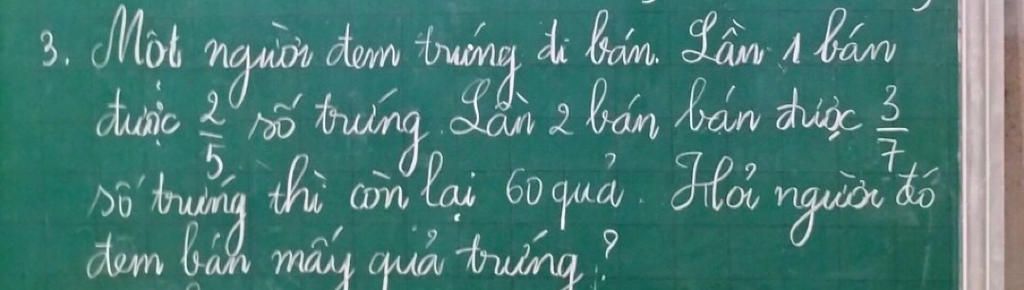 3. Một người đem trứng đi bán. Lần 1 bán
được 2/5 số trứng. Lần 2 bán bán được 3/7
số trứng thì còn lại 60 quả. Hỏi người đó
đem bán mấy quả trứng?